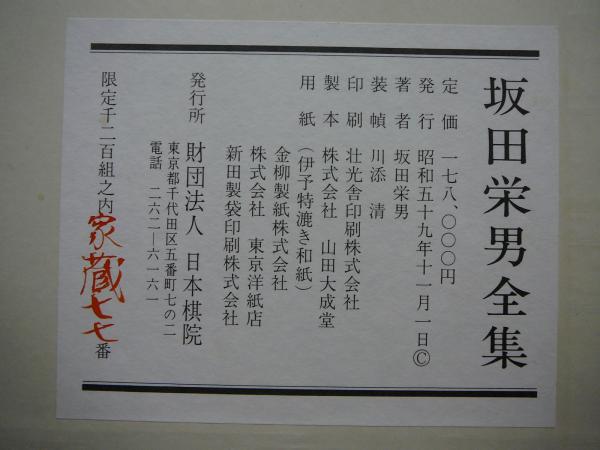 坂田栄男全集
定価 一七八、〇〇〇円
発行 昭和五十九年十一月一日Ⓒ
著者 坂田栄男
装幀 川添清
印刷 壮光舎印刷株式会社
製本 株式会社 山田大成堂
用紙 (伊予特漉き和紙)
金柳製紙株式会社
株式会社 東京洋紙店
新田製袋印刷株式会社
発行所 財団法人 日本棋院
東京都千代田区五番町七の二
電話 二六二―六一六一
限定千二百組之内 家蔵七七番